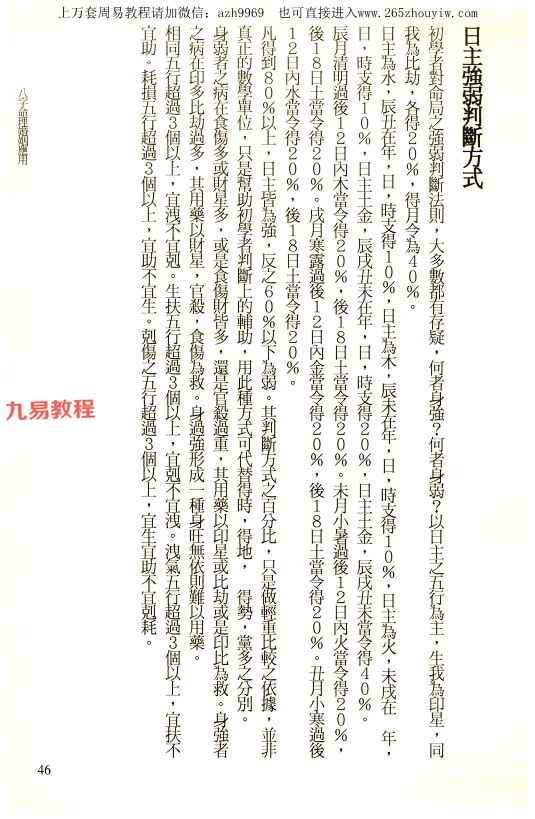 上万套周易教程请加微信：azh9969　也可直接进入www.265zhouyiw.com
日主強弱判斷方式
初學者對命局之強弱判斷法則，大多數都有存疑，何者身強？何者身弱？以日主之五行為主，生我為印星，同
我為比劫，各得20%，得月令為40%。
日主為水，辰丑在年，日，時支得10%，日主為木，辰未在年，日，時支得10%，日主為火，未戌在　年，
日，時支得10%，日主土金，辰戌丑未在年，日，時支得20%，日主土金，辰戌丑未當令得40%。
辰月清明過後12日內木當令得20%，後18日土當令得20%。未月小暑過後12日內火當令得20%，
後18日土當令得20%。戌月寒露過後12日內金當令得20%，後18日土當令得20%。丑月小寒過後
12日內水當令得20%，後18日土當令得20%。
凡得到80%以上，日主皆為強，反之60%以下為弱。其判斷方式之百分比，只是做輕重比較之依據，並非
真正的數學單位，只是幫助初學者判斷上的輔助，用此種方式可代替得時，得地，　得勢，黨多之分別。
身弱者之病在食傷多或財星多，或是食傷財皆多，還是官殺過重，其用藥以印星或比劫或是印比為救。身強者
之病在印多比劫過多，其用藥以財星，官殺，食傷為救。身過強形成一種身旺無依則難以用藥。
相同五行超過3個以上，宜洩不宜剋。生扶五行超過3個以上，宜剋不宜洩。洩氣五行超過3個以上，宜扶不
宜助。耗損五行超過3個以上，宜助不宜生。剋傷之五行超過3個以上，宜生宜助不宜剋耗。
九易教程
46